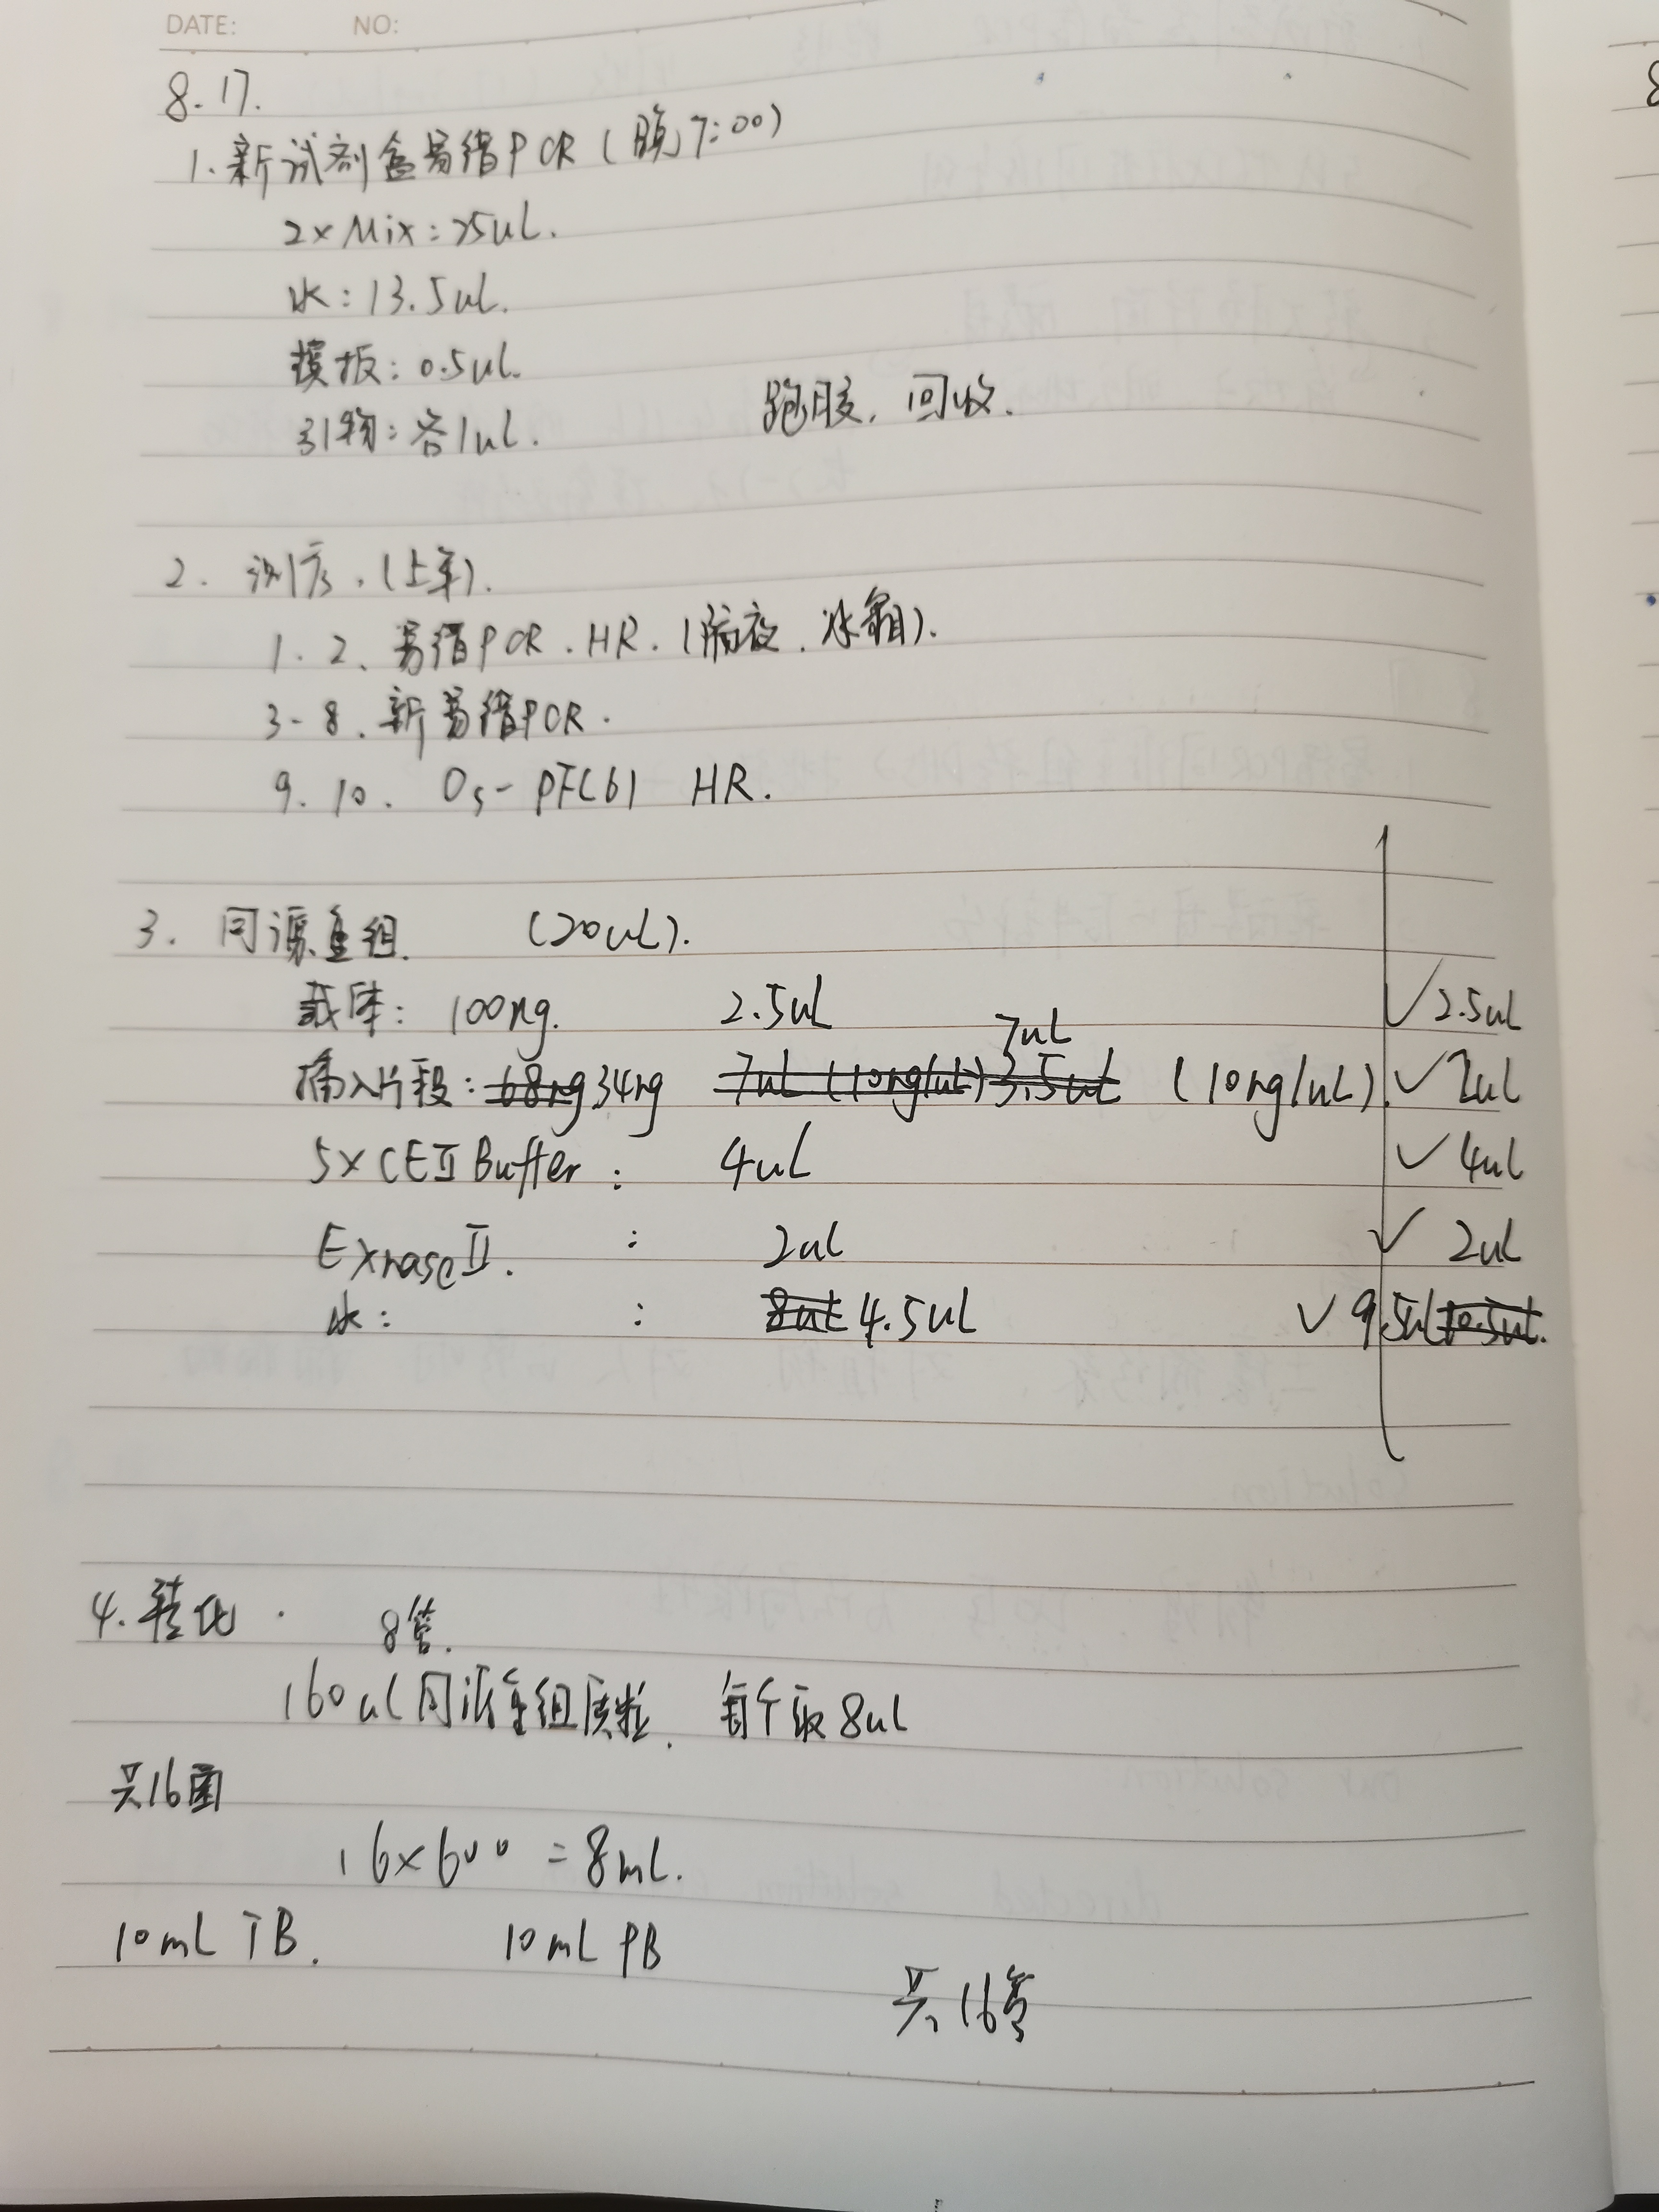 DATE: NO:
8.17.
1. 新试剂盒易错PCR (晚7:00)
2×Mix: 25uL.
水: 13.5uL.
模板: 0.5uL.
引物: 各1uL.
跑胶, 回收.
2. 测序. (上午).
1. 2、易错PCR. HR. (隔夜. 冰箱).
3-8. 新易错PCR.
9. 10. Os-PFC61 HR.
3. 同源重组. (20uL).
载体: 100ng. 2.5uL ✓2.5uL
7uL
插入片段: 68ng 34ng 7uL (10ng/uL) 3.5uL (10ng/uL). ✓2uL
5×CEⅡ Buffer: 4uL ✓4uL
ExnaseⅡ. : 2uL ✓ 2uL
水: : 8uL 4.5uL ✓9.5uL 10.5uL.
4. 转化. 8管.
160uL同源重组质粒. 每个取8uL
共16菌
16×600 = 8mL.
10mL TB. 10mL PB
共16管